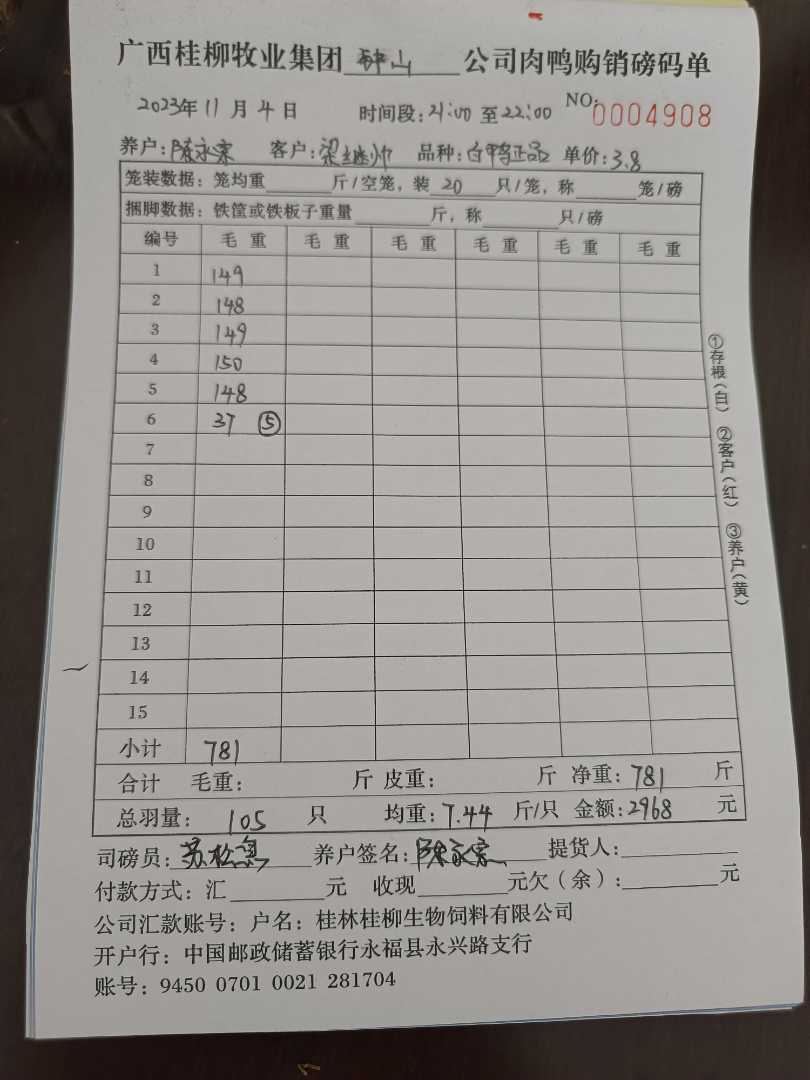 广西桂柳牧业集团 钟山 公司肉鸭购销磅码单
2023年11月4日 时间段:21:00至22:00 NO:0004908
养户:陈永宗 客户:梁继帅 品种:白鸭正品 单价:3.8
笼装数据: 笼均重 斤/空笼, 装 20 只/笼, 称 笼/磅
捆脚数据: 铁筐或铁板子重量 斤, 称 只/磅
编号 毛重 毛重 毛重 毛重 毛重 毛重
1 149
2 148
3 149
4 150
5 148
6 37 ⑤
7
8
9
10
11
12
13
14
15
小计 781
合计 毛重: 斤 皮重: 斤 净重:781 斤
总羽量: 105 只 均重:7.44 斤/只 金额:2968 元
司磅员: 养户签名:陈永宗 提货人:
付款方式: 汇 元 收现 元欠(余): 元
公司汇款账号: 户名: 桂林桂柳生物饲料有限公司
开户行: 中国邮政储蓄银行永福县永兴路支行
账号: 9450 0701 0021 281704
①存根(白) ②客户(红) ③养户(黄)